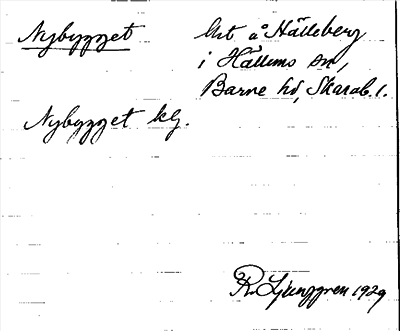 Nybygget
Urt å Hälleberg
i Hällums sn,
Barne hd, Skarab. l.
Nybygget klg.
R. Ljunggren 1929